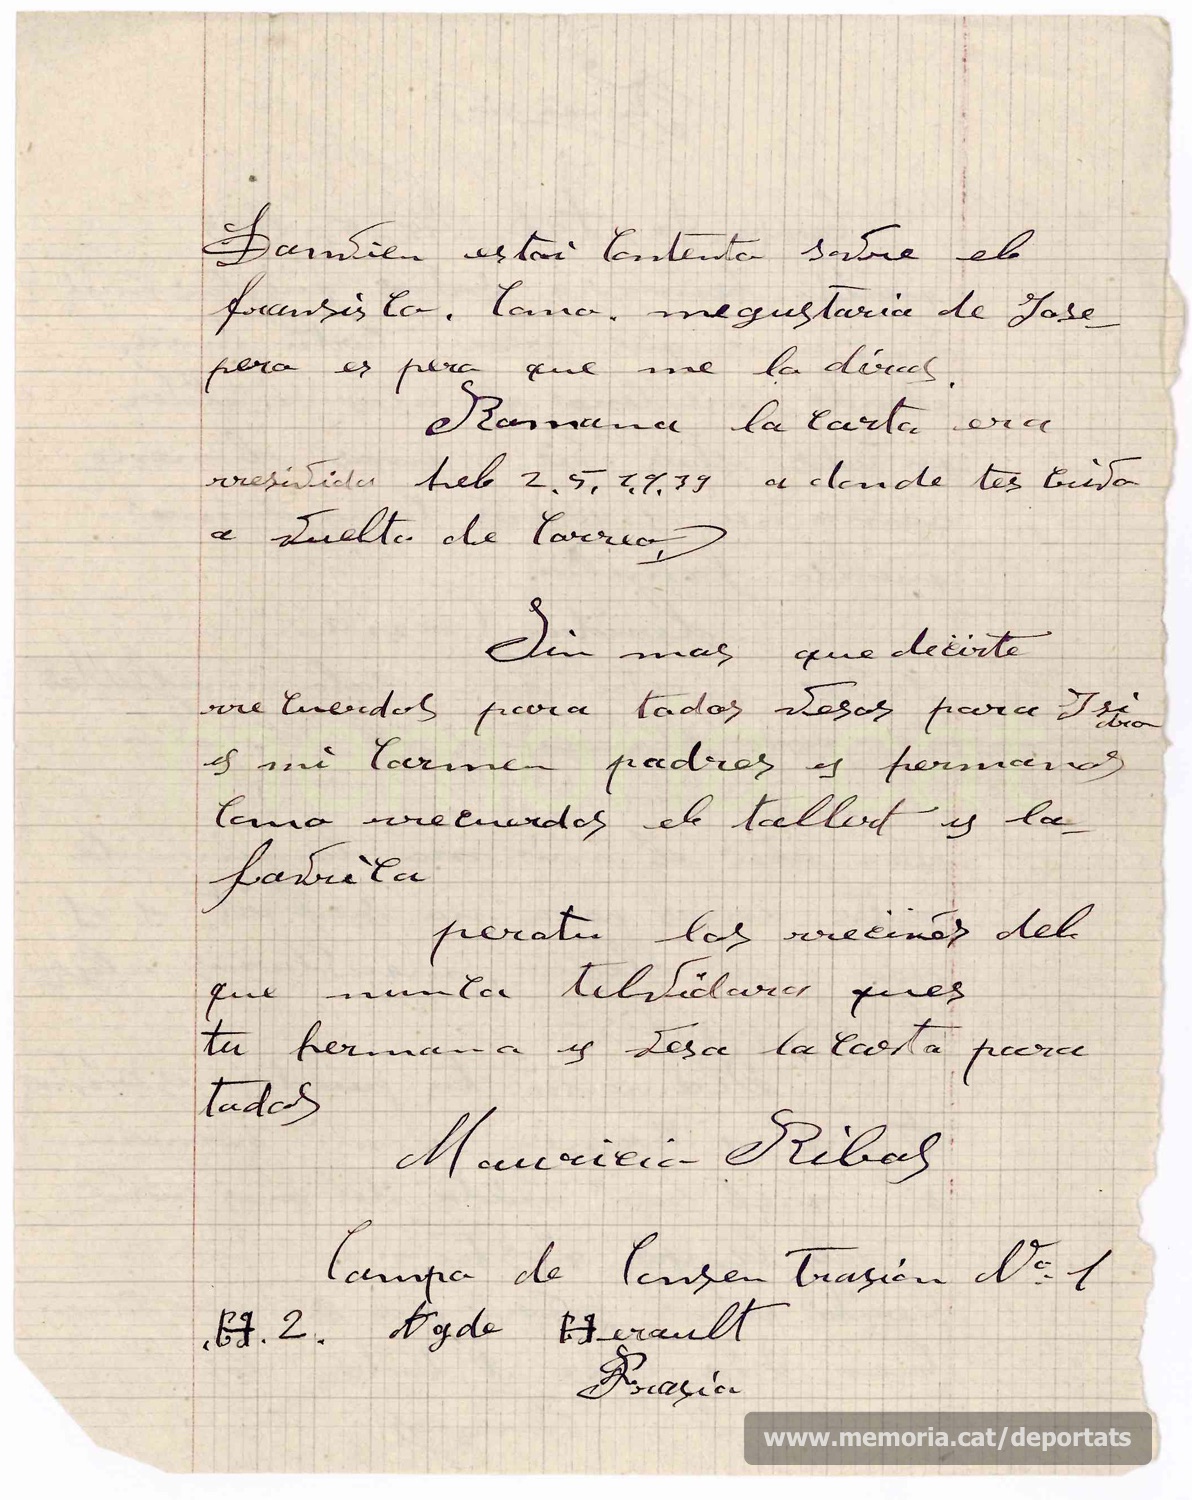 Tanvien estoi contento sovre el
fransisco. como. megustaria de Jose
pero es pero que me lo diras.
Romana la carta era
rresivida hel 2.5.1.9.39 a donde tescrivo
a vuelta de correo,
Sin mas que decirte
rrecuerdos para todos vesos para Isidro
y mi Carmen padres y hermanos
como rrecuerdos el tallert y la
favrica
perotu los rrecives del
que nunca telvidara ques
tu hermano y vesa la carta para
todos
Mauricio Ribas
Campo de Consentrasión Nº 1
H. 2. Agde Herault
Frasia
www.memoria.cat/deportats